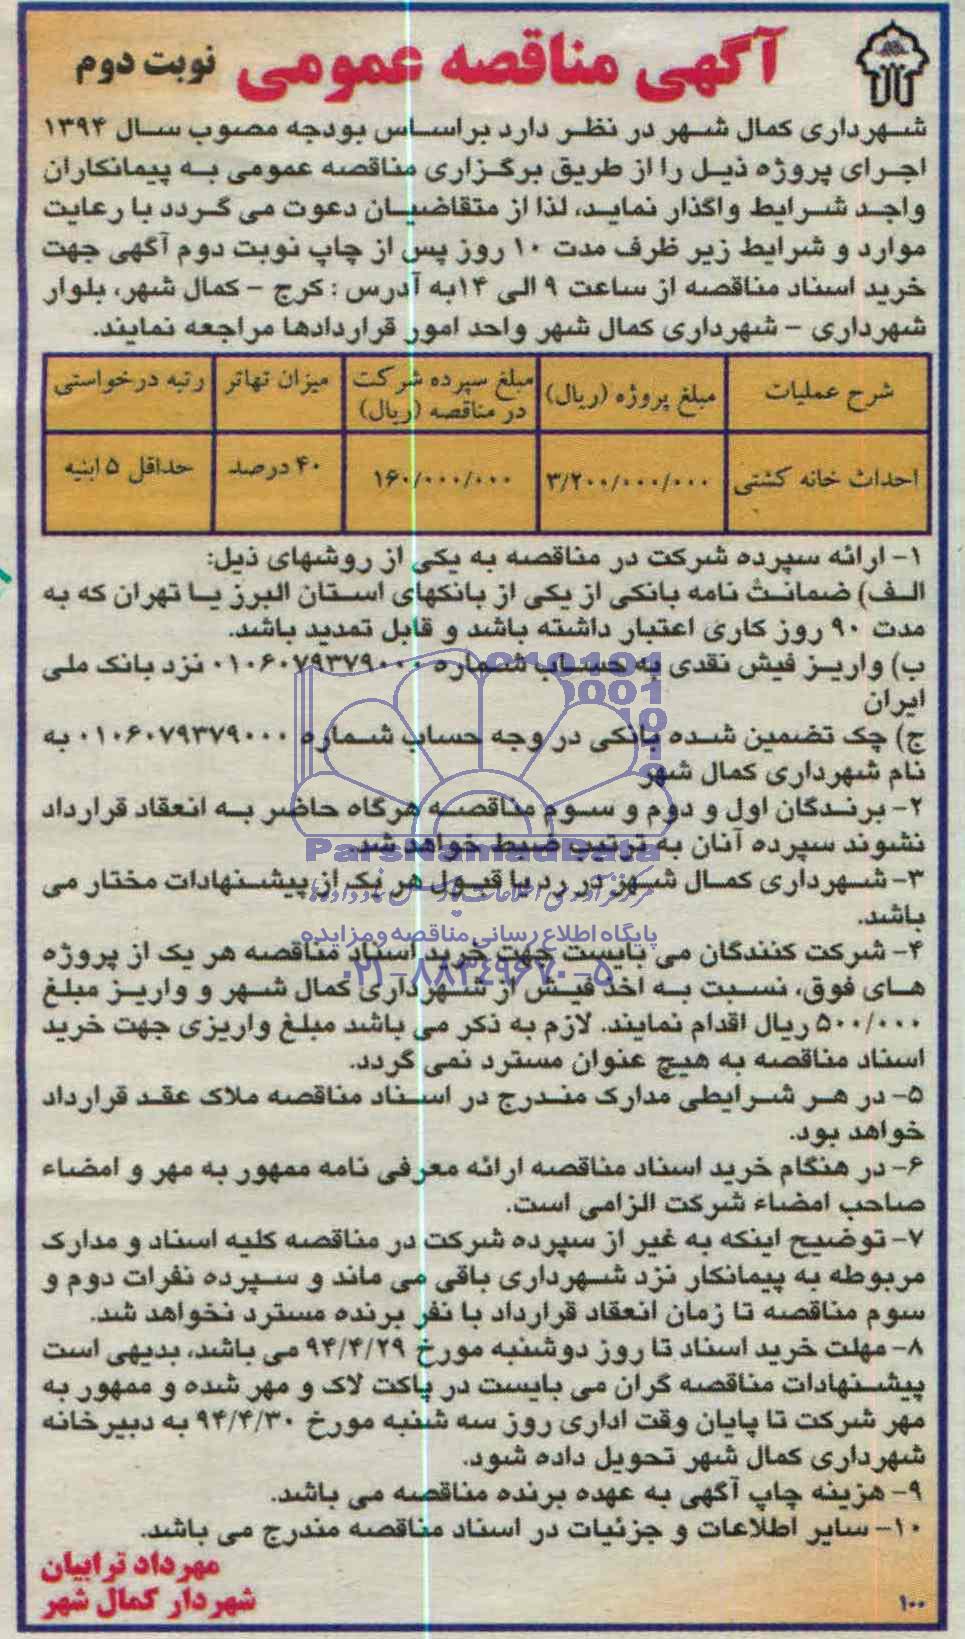 آگهی مناقصه عمومی نوبت دوم
شهرداری کمال شهر در نظر دارد براساس بودجه مصوب سال ۱۳۹۴
اجرای پروژه ذیل را از طریق برگزاری مناقصه عمومی به پیمانکاران
واجد شرایط واگذار نماید، لذا از متقاضیان دعوت می گردد با رعایت
موارد و شرایط زیر ظرف مدت ۱۰ روز پس از چاپ نوبت دوم آگهی جهت
خرید اسناد مناقصه از ساعت ۹ الی ۱۴به آدرس : کرج - کمال شهر، بلوار
شهرداری - شهرداری کمال شهر واحد امور قراردادها مراجعه نمایند.
شرح عملیات مبلغ پروژه (ریال) مبلغ سپرده شرکت در مناقصه (ریال) میزان تهاتر رتبه درخواستی
احداث خانه کشتی ۳/۲۰۰/۰۰۰/۰۰۰ ۱۶۰/۰۰۰/۰۰۰ ۴۰ درصد حداقل ۵ ابنیه
۱- ارائه سپرده شرکت در مناقصه به یکی از روشهای ذیل:
الف) ضمانت نامه بانکی از یکی از بانکهای استان البرز یا تهران که به
مدت ۹۰ روز کاری اعتبار داشته باشد و قابل تمدید باشد.
ب) واریز فیش نقدی به حساب شماره ۰۱۰۶۰۷۹۳۷۹۰۰۰ نزد بانک ملی
ایران
ج) چک تضمین شده بانکی در وجه حساب شماره ۰۱۰۶۰۷۹۳۷۹۰۰۰ به
نام شهرداری کمال شهر
۲- برندگان اول و دوم و سوم مناقصه هرگاه حاضر به انعقاد قرارداد
نشوند سپرده آنان به ترتیب ضبط خواهد شد.
ParsNamadData
۳- شهرداری کمال شهر در رد یا قبول هر یک از پیشنهادات مختار می
باشد.
پایگاه اطلاع رسانی مناقصه و مزایده
۴- شرکت کنندگان می بایست جهت خرید اسناد مناقصه هر یک از پروژه
۰۲۱-۸۸۳۴۹۶۷۰-۵
های فوق، نسبت به اخذ فیش از شهرداری کمال شهر و واریز مبلغ
۵۰۰/۰۰۰ ریال اقدام نمایند. لازم به ذکر می باشد مبلغ واریزی جهت خرید
اسناد مناقصه به هیچ عنوان مسترد نمی گردد.
۵- در هر شرایطی مدارک مندرج در اسناد مناقصه ملاک عقد قرارداد
خواهد بود.
۶- در هنگام خرید اسناد مناقصه ارائه معرفی نامه ممهور به مهر و امضاء
صاحب امضاء شرکت الزامی است.
۷- توضیح اینکه به غیر از سپرده شرکت در مناقصه کلیه اسناد و مدارک
مربوطه به پیمانکار نزد شهرداری باقی می ماند و سپرده نفرات دوم و
سوم مناقصه تا زمان انعقاد قرارداد با نفر برنده مسترد نخواهد شد.
۸- مهلت خرید اسناد تا روز دوشنبه مورخ ۹۴/۴/۲۹ می باشد، بدیهی است
پیشنهادات مناقصه گران می بایست در پاکت لاک و مهر شده و ممهور به
مهر شرکت تا پایان وقت اداری روز سه شنبه مورخ ۹۴/۴/۳۰ به دبیرخانه
شهرداری کمال شهر تحویل داده شود.
۹- هزینه چاپ آگهی به عهده برنده مناقصه می باشد.
۱۰- سایر اطلاعات و جزئیات در اسناد مناقصه مندرج می باشد.
مهرداد ترابیان
شهردار کمال شهر
۱۰۰